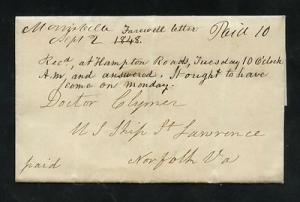 Morrisville Farewell letter Paid 10
Sept 2 1848.
Recd, at Hampton Roads, Tuesday 10 O'clock
A.M, and answered. It ought to have
come on Monday.
Doctor Clymer
U S Ship St Lawrence
Norfolk Va
paid